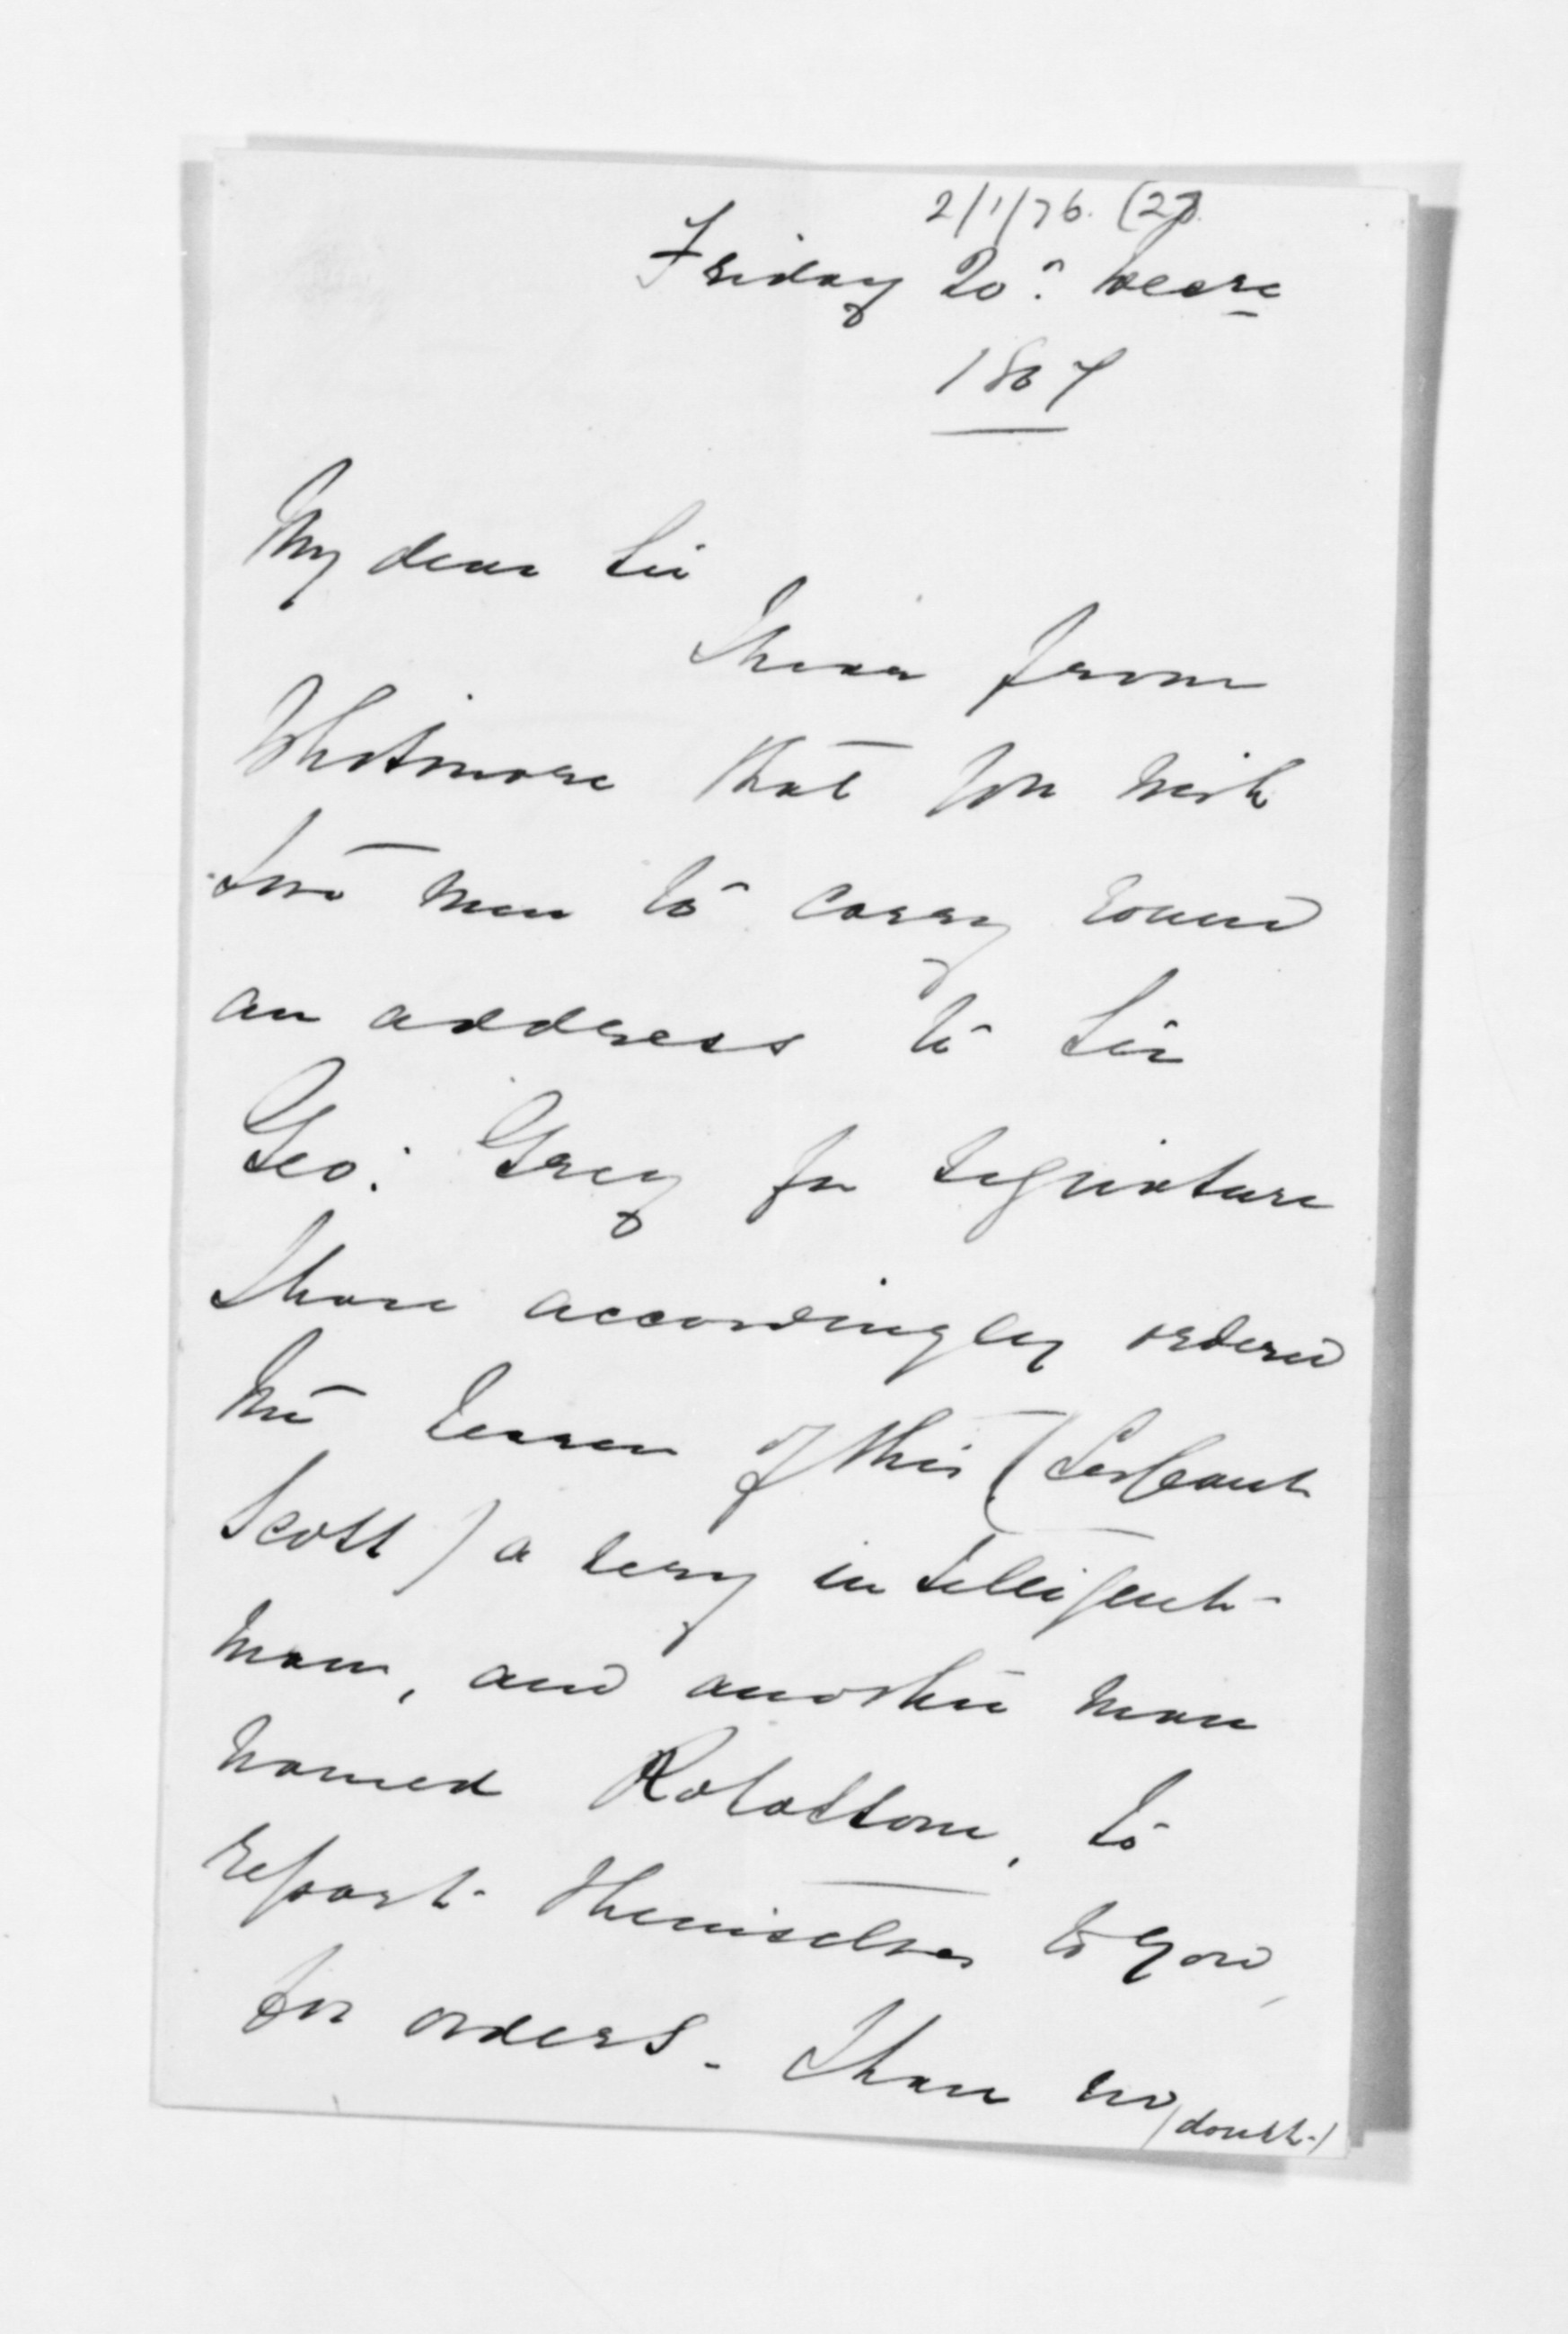 2/1/76. (27).
Friday 20th Decre
1867
My dear Sir
I hear from
Whitmore that you wish
two men to carry round
an address to Sir
Geo: Grey for signature
I have accordingly ordered
the bearer of this (Serjeant
Scott) a very intelligent
man, and another man
named Robottom, to
report themselves to you,
for orders - I have no
(doubt-)